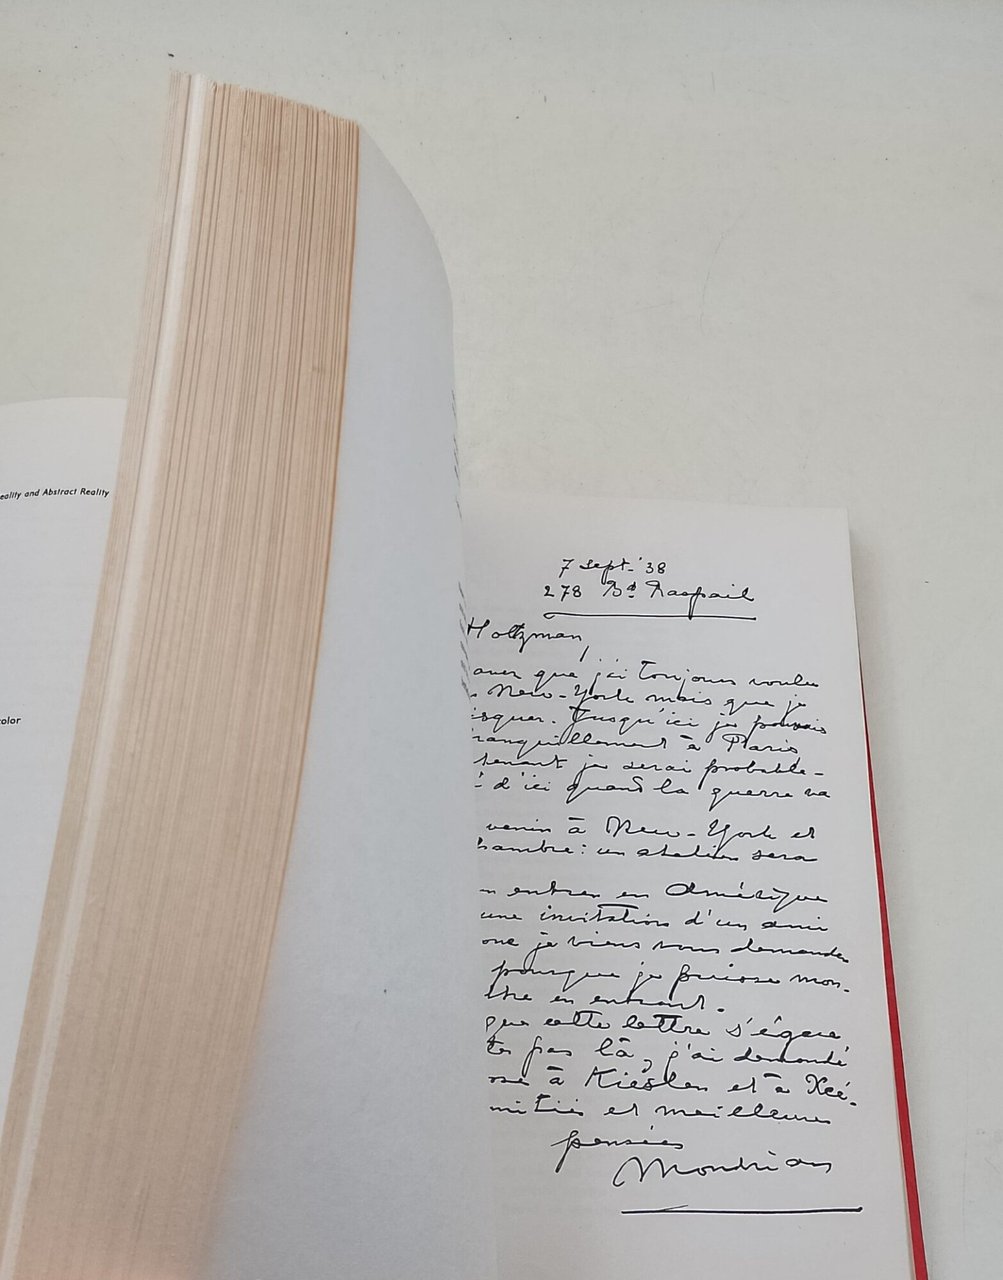 eality and Abstract Reality
color
7 sept. '38
278 Bd Raspail
Holtzman,
avez que j'ai toujours voulu
New-York mais que je
isquer. Jusqu'ici je pouvais
ranquillement à Paris
tenant je serai probable-
d'ici quand la guerre va
venir à New-York et
hambre: un atelier sera
n entrer en Amérique
une invitation d'un ami
onc je viens vous demander
pourque je puisse mon-
ttre en entrant.
que cette lettre s'égare,
tes pas là, j'ai demandé
ose à Kiesler et à Xcé-
mitiés et meilleures
pensées
Mondrian